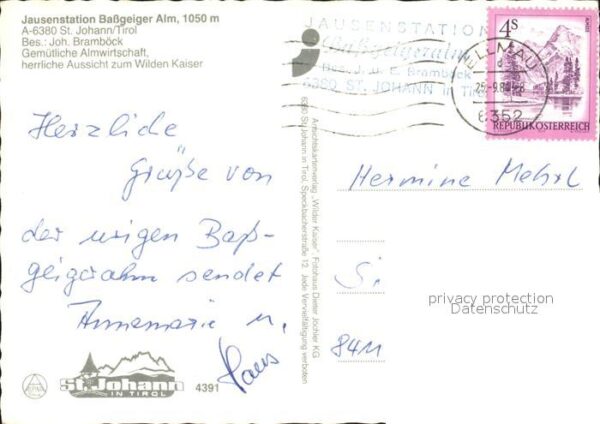 Jausenstation Baßgeiger Alm, 1050 m
A-6380 St. Johann/Tirol
Bes.: Joh. Bramböck
Gemütliche Almwirtschaft,
herrliche Aussicht zum Wilden Kaiser
JAUSENSTATION
Baßgeigeralm
Bes. J. u. E. Bramböck
6380 ST. JOHANN in Tirol
ELLMAU
6352
4S
REPUBLIK ÖSTERREICH
Herzliche
Grüße von
der urigen Baß-
geigeralm sendet
Annemarie u.
Hans
Hermine Mehrl
privacy protection
Datenschutz
8411
Ansichtskartenverlag „Wilder Kaiser", Fotohaus Dieter Jöchler KG
6380 St. Johann in Tirol, Speckbacherstraße 12. Jede Vervielfältigung verboten
St. Johann
IN TIROL
4391